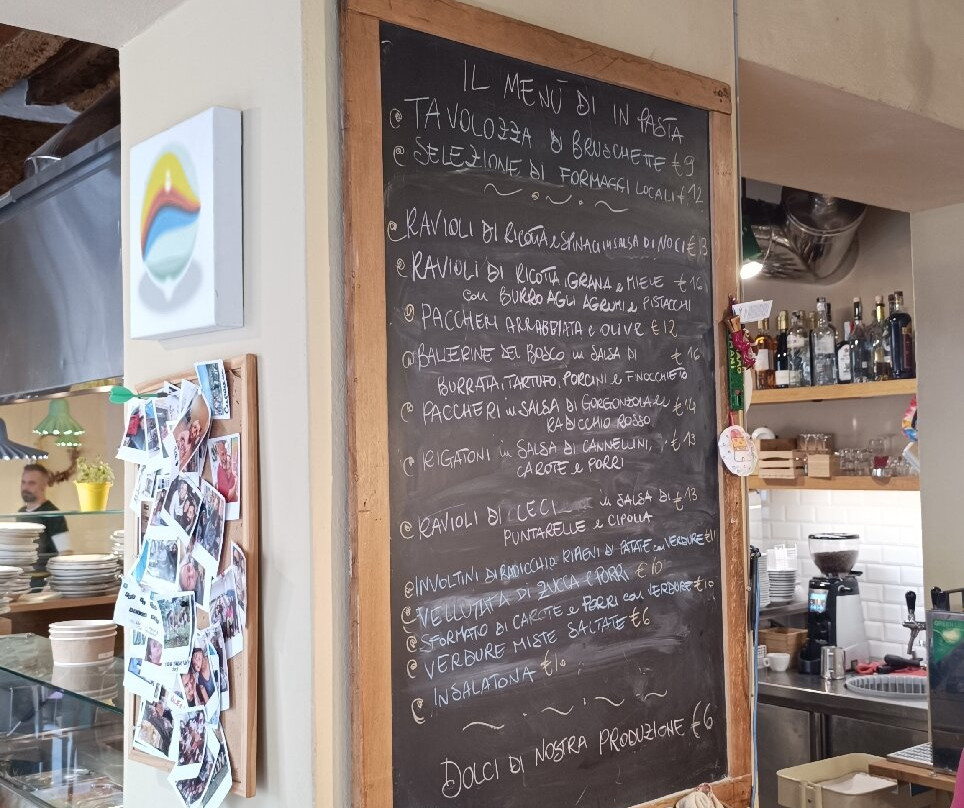 IL MENÙ DI IN PASTA
TAVOLOZZA DI BRUSCHETTE €9
SELEZIONE DI FORMAGGI LOCALI €12
RAVIOLI DI RICOTTA e SPINACI in SALSA DI NOCI €13
RAVIOLI DI RICOTTA, GRANA e MIELE €16
con BURRO AGLI AGRUMI e PISTACCHI
PACCHERI ARRABBIATA e OLIVE €12
BALERINE DEL BOSCO in SALSA DI €16
BURRATA, TARTUFO, PORCINI e FINOCCHIETO
PACCHERI in SALSA DI GORGONZOLA e €14
RADICCHIO ROSSO
RIGATONI in SALSA DI CANNELLINI, €13
CAROTE e PORRI
RAVIOLI DI CECI in SALSA DI €13
PUNTARELLE e CIPOLLA
INVOLTINI DI RADICCHIO RIPIENI DI PATATE con VERDURE
VELLUTATA DI ZUCCA e PORRI €10
SFORMATO DI CAROTE e PORRI con VERDURE €10
VERDURE MISTE SALTATE €6
INSALATONA €10
DOLCI DI NOSTRA PRODUZIONE €6